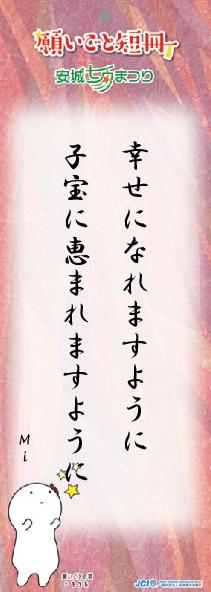 願いごと短冊
安城七夕まつり
幸せになれますように
子宝に恵まれますように
Mi
願いごと短冊
JCI